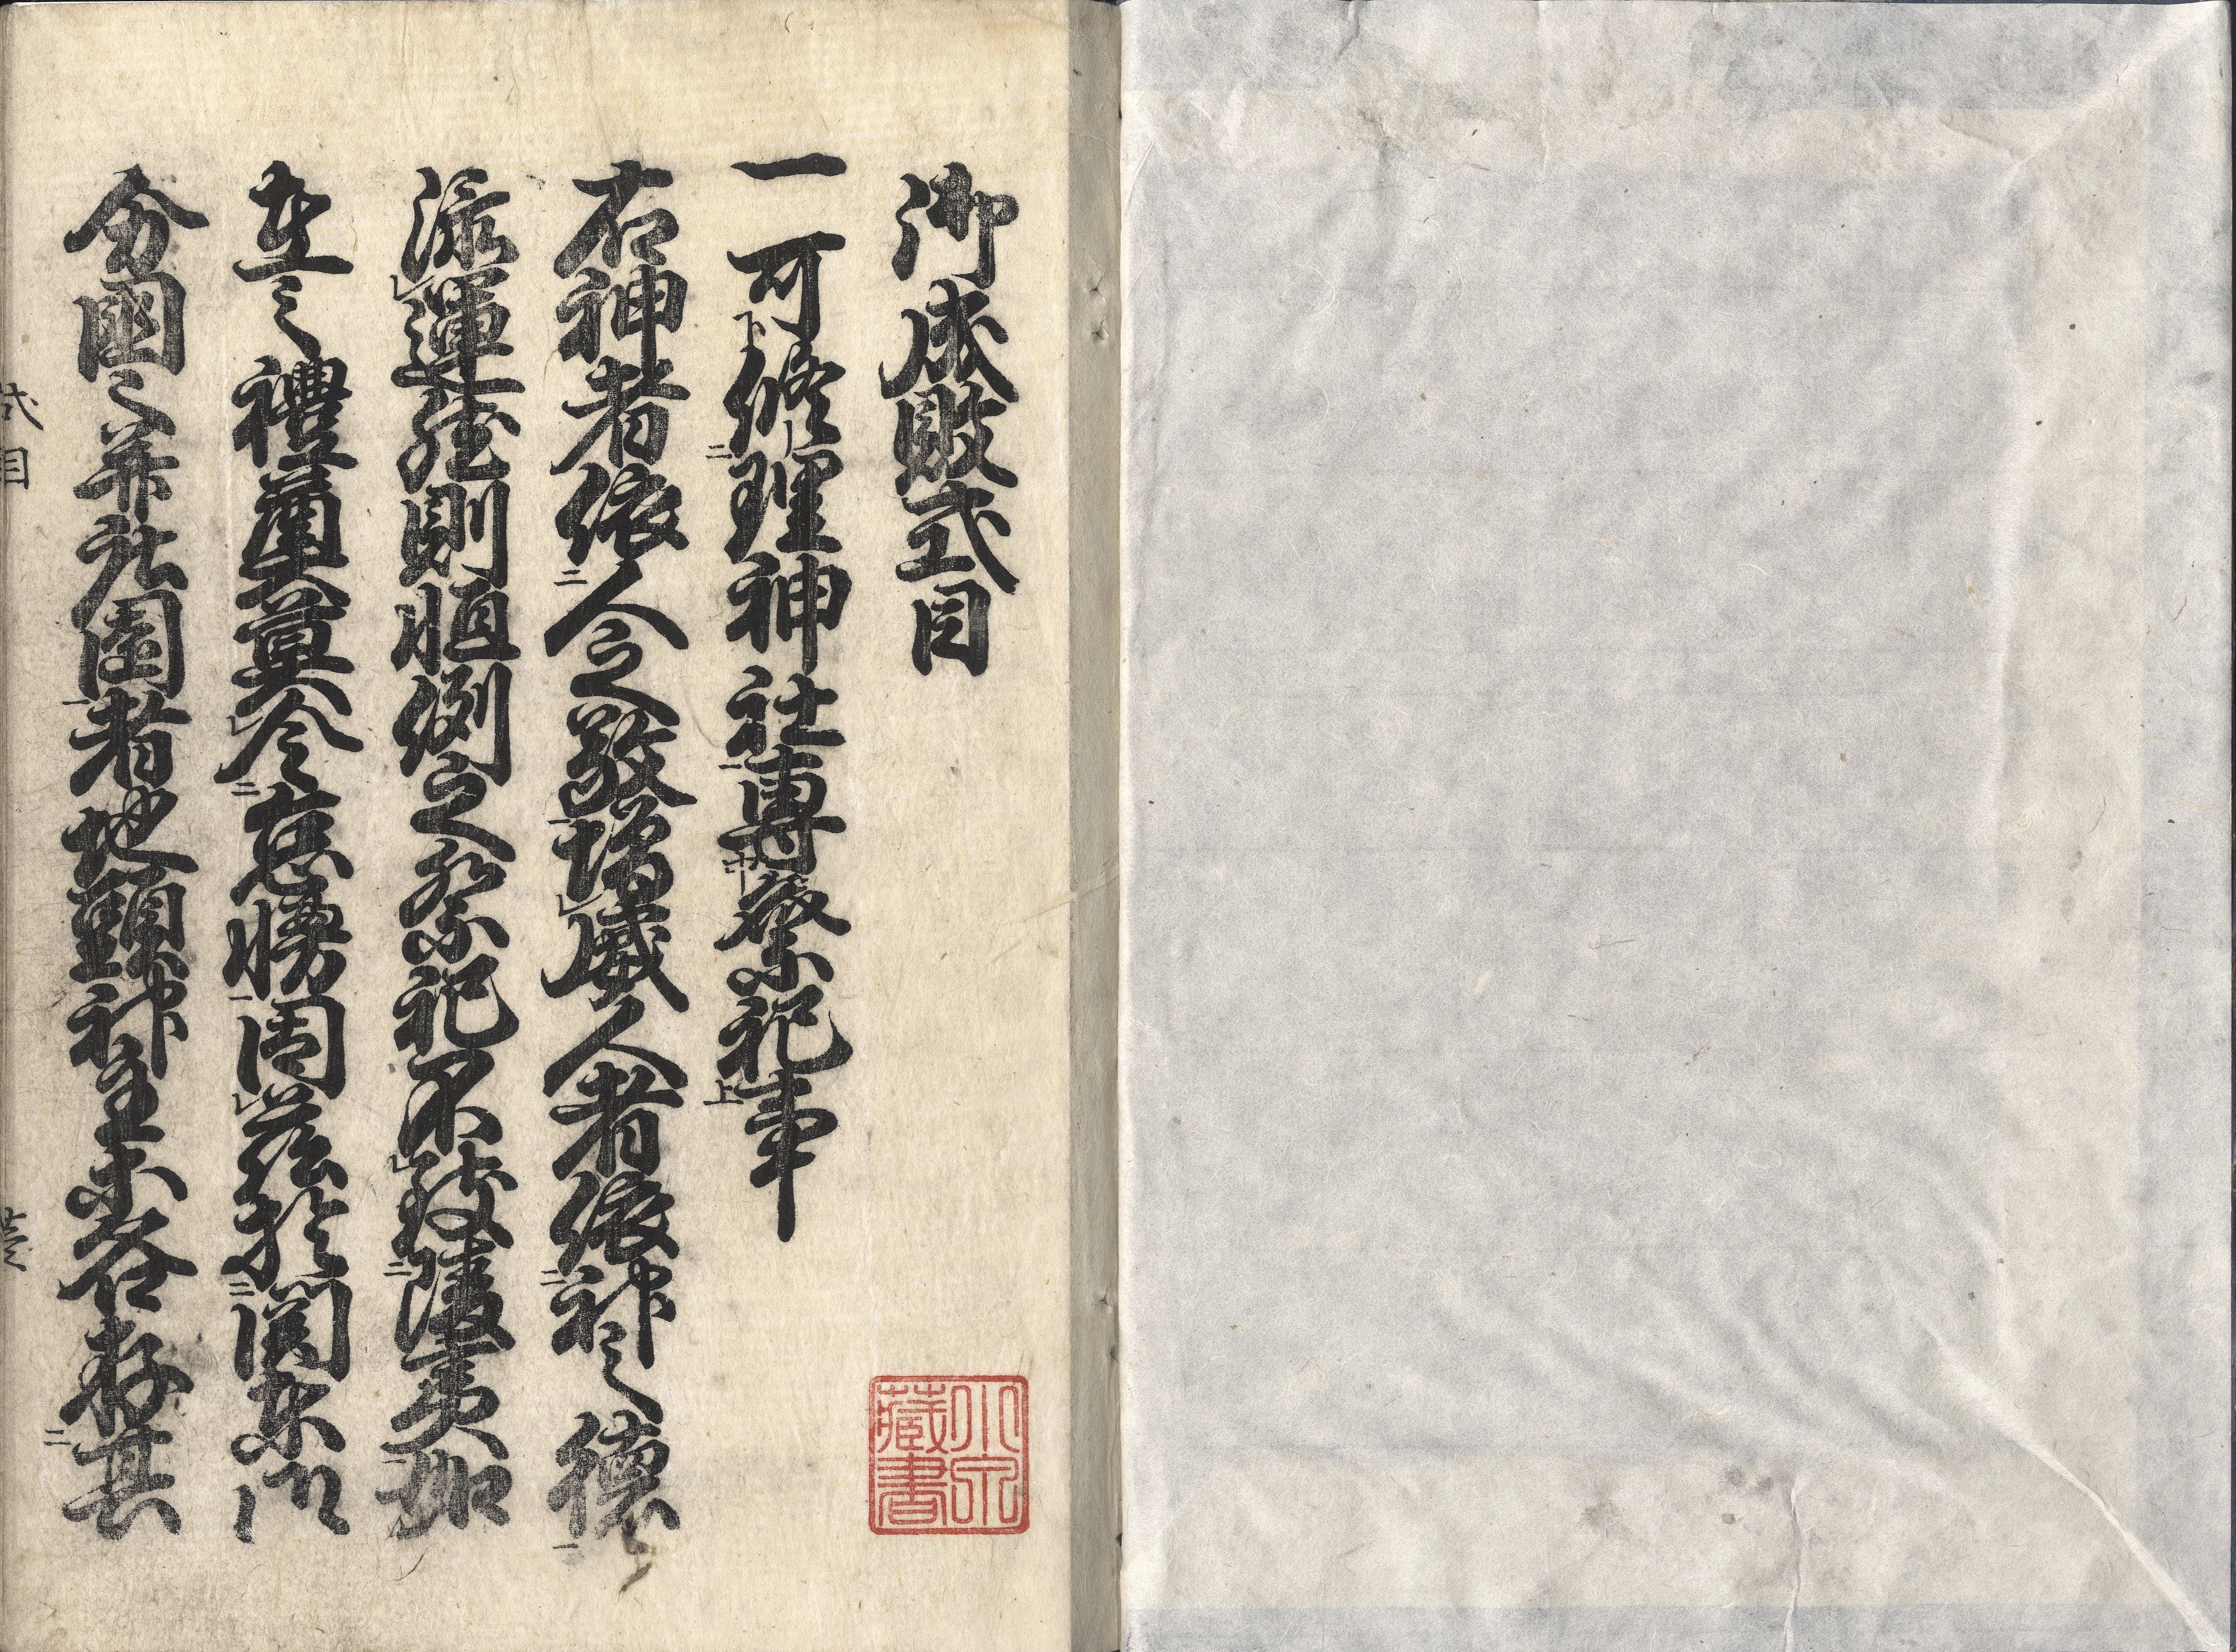 御成敗式目
一可修理神社專祭祀事
右神者依人之敬増威人者依神之德
添運然則恒例之祭祀不致陵夷如
在之禮奠莫令怠慢因茲於關東御
分國々并庄園者地頭神主等各存其
式目
壹
藏書